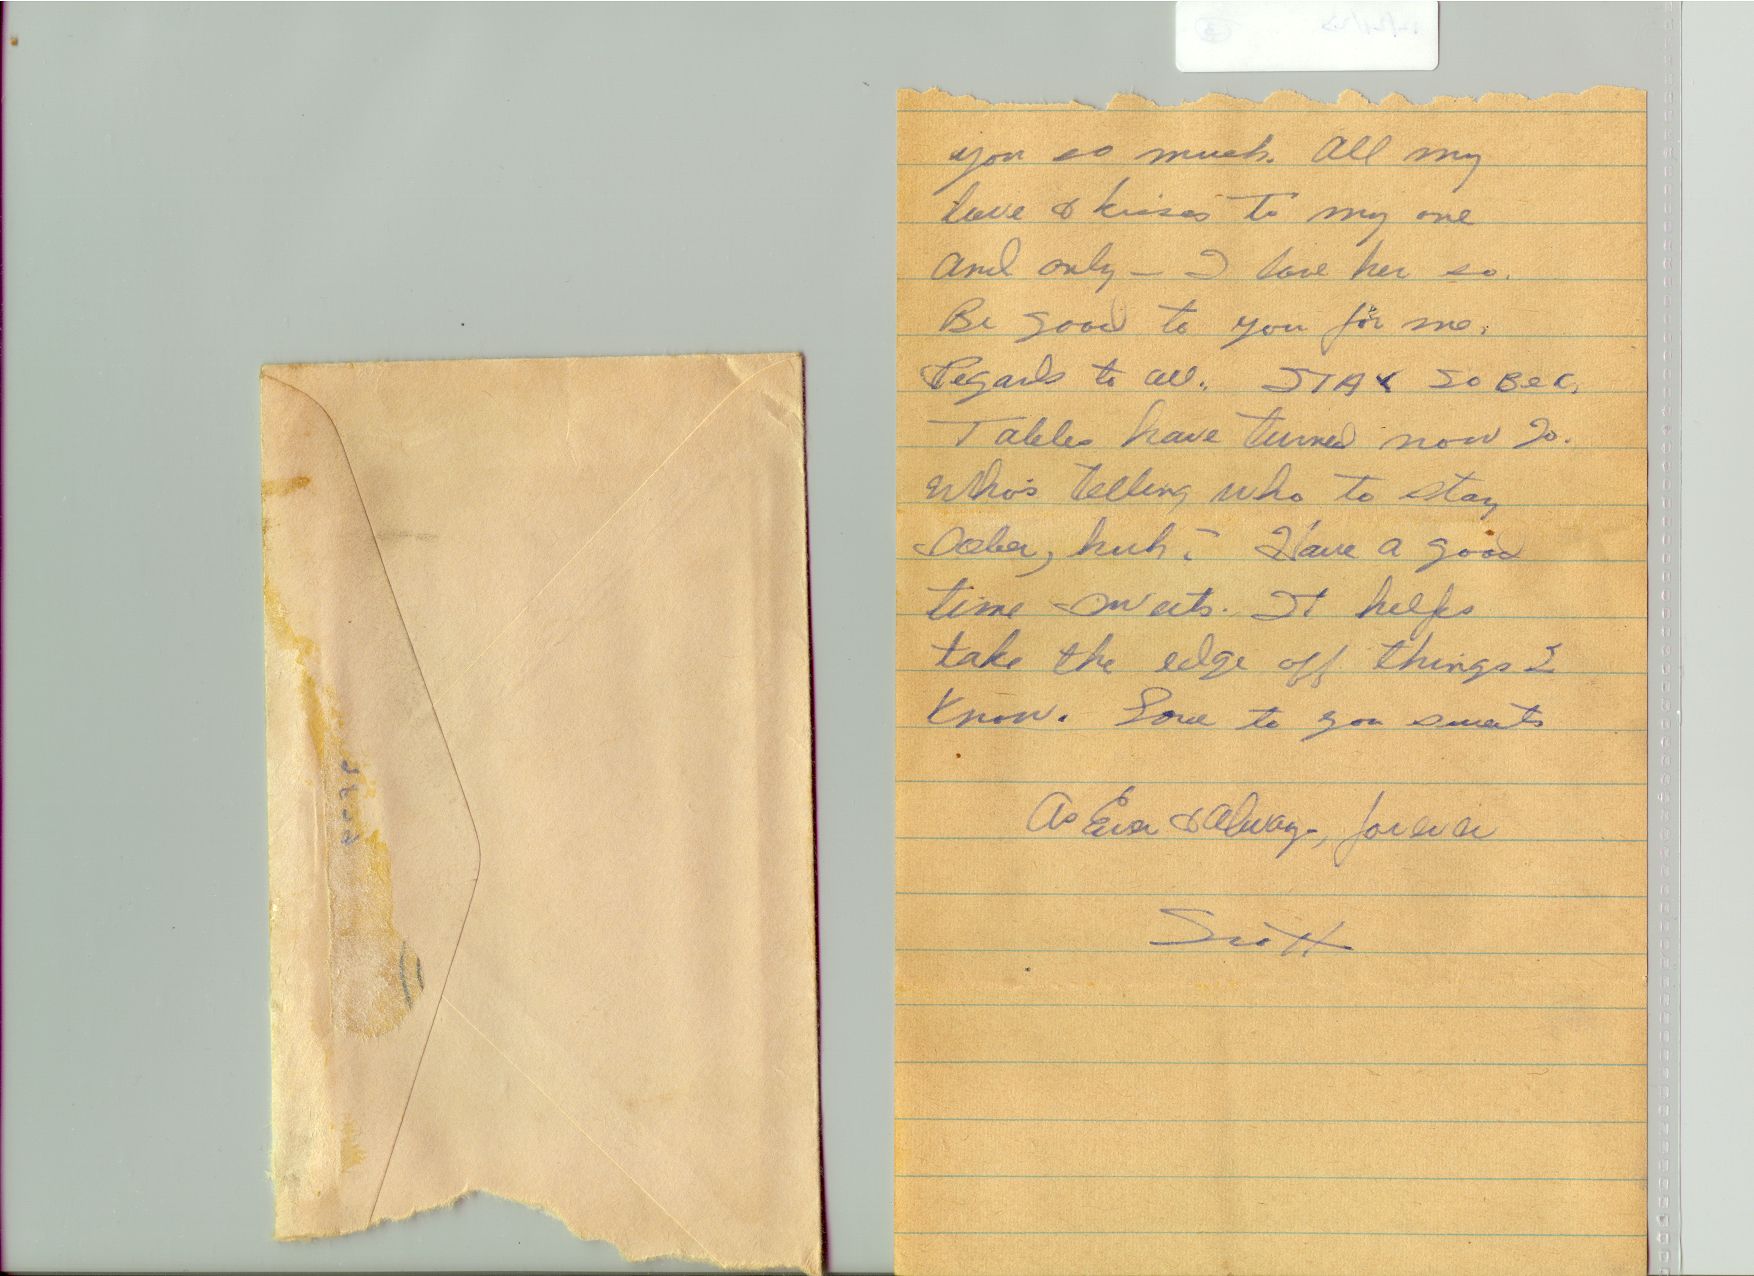 you so much. All my
love & kisses to my one
and only — I love her so.
Be good to you for me.
Regards to all. STAY SOBER.
Tables have turned now
Who's telling who to stay
sober, huh? Have a good
time sweets. It helps
take the edge off things I
know. Love to you sweets
As Ever & Always, forever
Scott